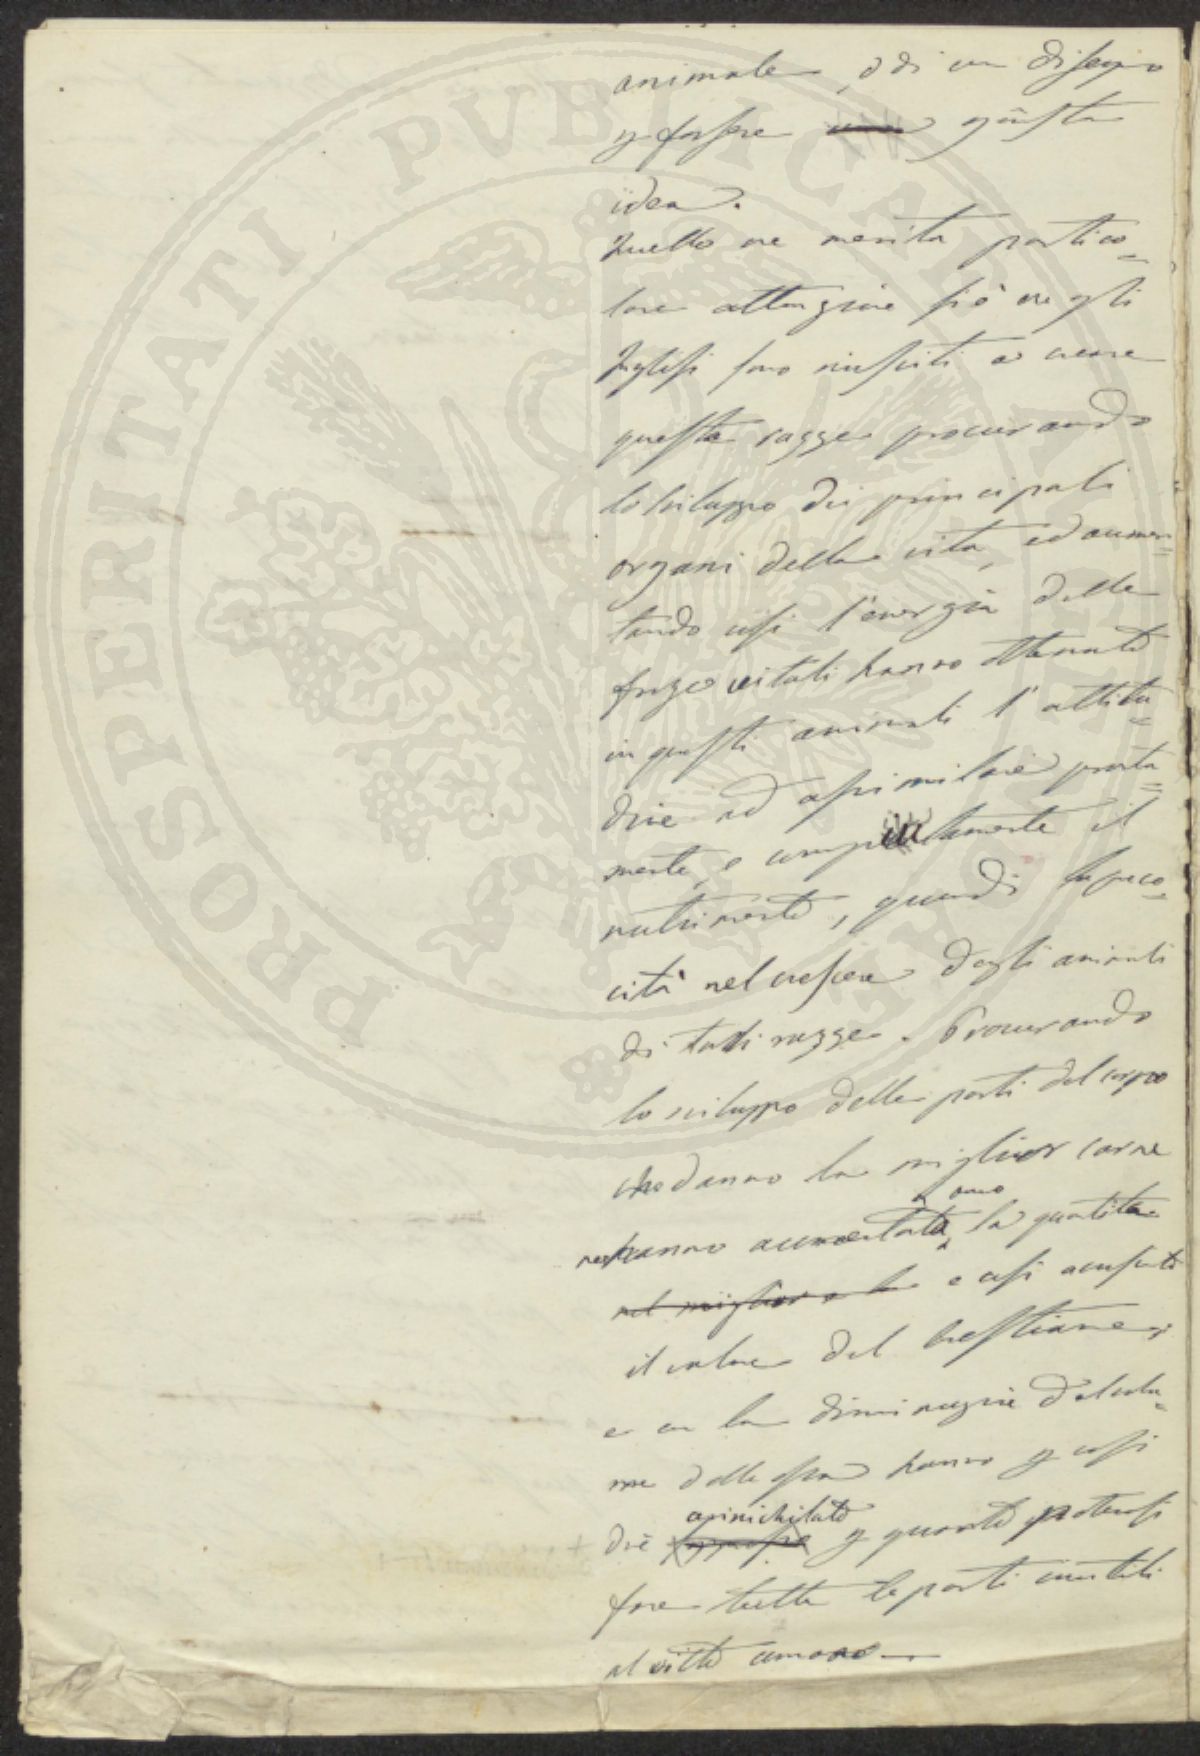 animale, o di un disegno
p forse una giusta
idea.
Quello che merita partico=
lare attenzione si è che gli
Inglesi sono riusciti a creare
queste razze procurando
lo sviluppo dei principali
organi della vita, ed aumen=
tando così l'energia delle
forze vitali hanno ottenuto
in questi animali l'attitu=
dine ad assimilare pronta=
mente, e completamente il
nutrimento, quindi la preco=
cità nel crescere degli animali
di tali razze. Procurando
lo sviluppo delle parti del corpo
che danno la miglior carne
hanno aumentata la quantità
nel migliore e così accresciuto
il valore del bestiame;
e con la diminuzione del volu=
me delle ossa hanno p così
dire annichilato p quanto potevasi
fare tutte le parti inutili
al vitto umano —
PROSPERITATI PUBLICAE AUGENDAE